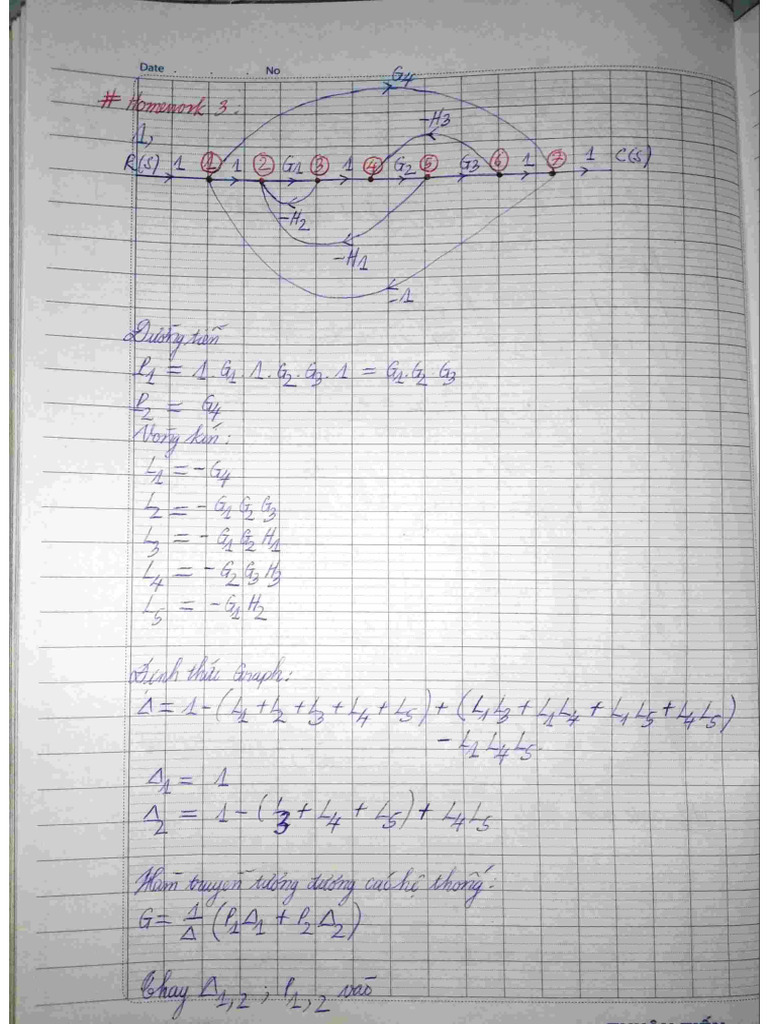 Date No
# Homework 3:
1,
G4
-H3
R(S) 1 1 1 2 G1 3 1 4 G2 5 G3 6 1 7 1 C(S)
-H2
-H1
-1
Đường tiến
P1 = 1.G1.1.G2.G3.1 = G1.G2 G3
P2 = G4
Vòng kín:
L1 = -G4
L2 = -G1G2G3
L3 = -G1G2H1
L4 = -G2G3H3
L5 = -G1H2
Định thức Graph:
Δ = 1-(L1+L2+L3+L4+L5)+(L1L3+L1L4+L1L5+L4L5)
- L1L4L5
Δ1 = 1
Δ2 = 1-(L3+L4+L5)+L4L5
Hàm truyền tương đương các hệ thống:
G = 1/Δ (P1Δ1 + P2Δ2)
Thay Δ1,2 ; P1,2 vào